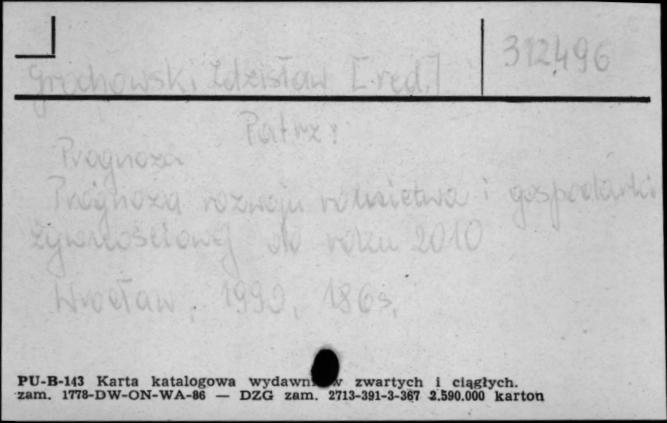 312496
Grochowski Zdzisław [red.]
Patrz:
Prognoza
Prognoza rozwoju rolnictwa i gospodarki
żywnościowej do roku 2010
Wrocław, 1990, 186 s.
PU-B-143 Karta katalogowa wydawnictw zwartych i ciągłych.
zam. 1778-DW-ON-WA-86 — DZG zam. 2713-391-3-367 2.590.000 karton